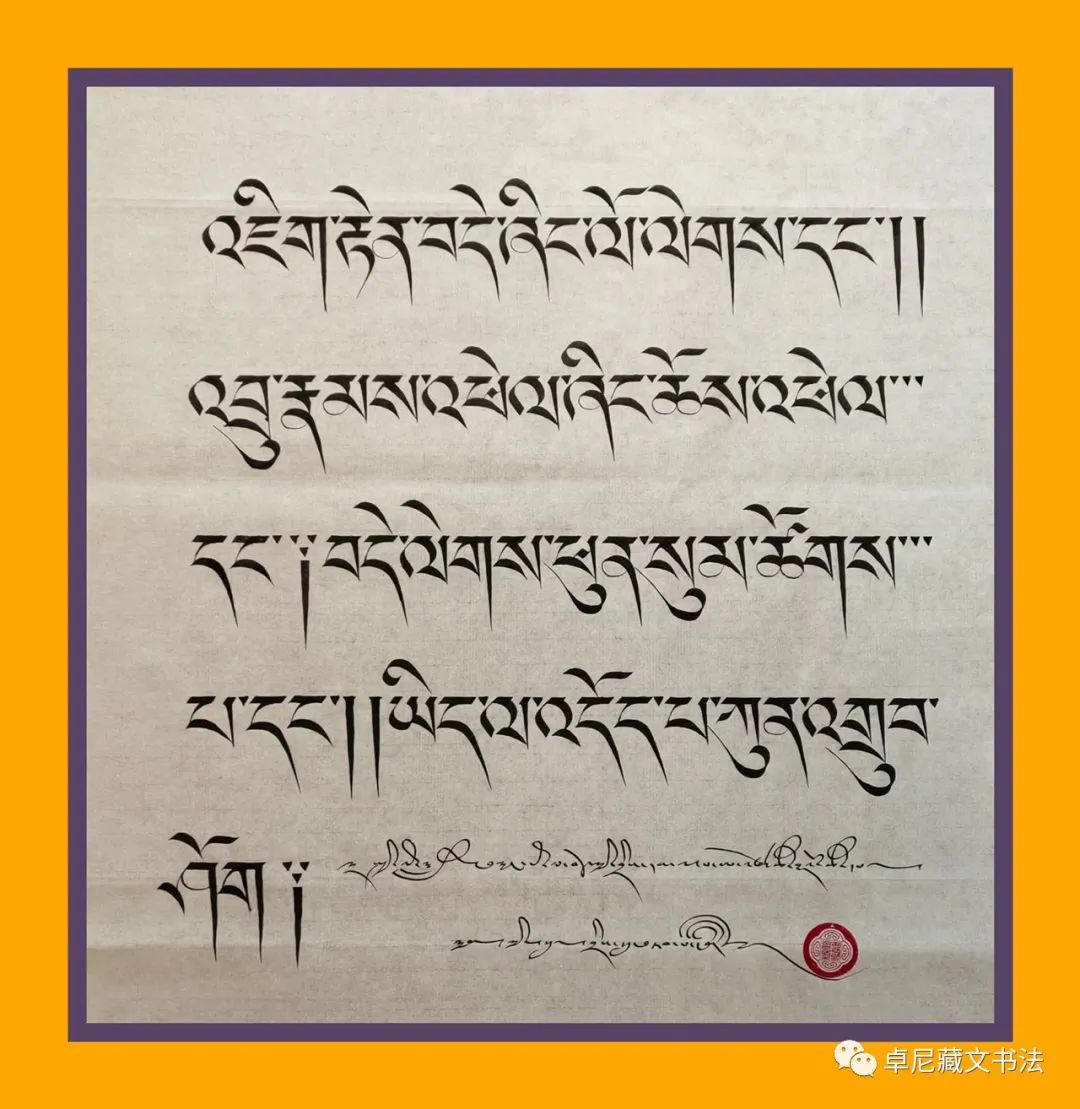 འཇིག་རྟེན་བདེ་ཞིང་ལོ་ལེགས་དང་།།
འབྲུ་རྣམས་འཕེལ་ཞིང་ཆོས་འཕེལ་་་
དང་༑བདེ་ལེགས་ཕུན་སུམ་ཚོགས་་་
པ་དང་།།ཡིད་ལ་འདོད་པ་ཀུན་འགྲུབ་
ཤོག༑
卓尼藏文书法